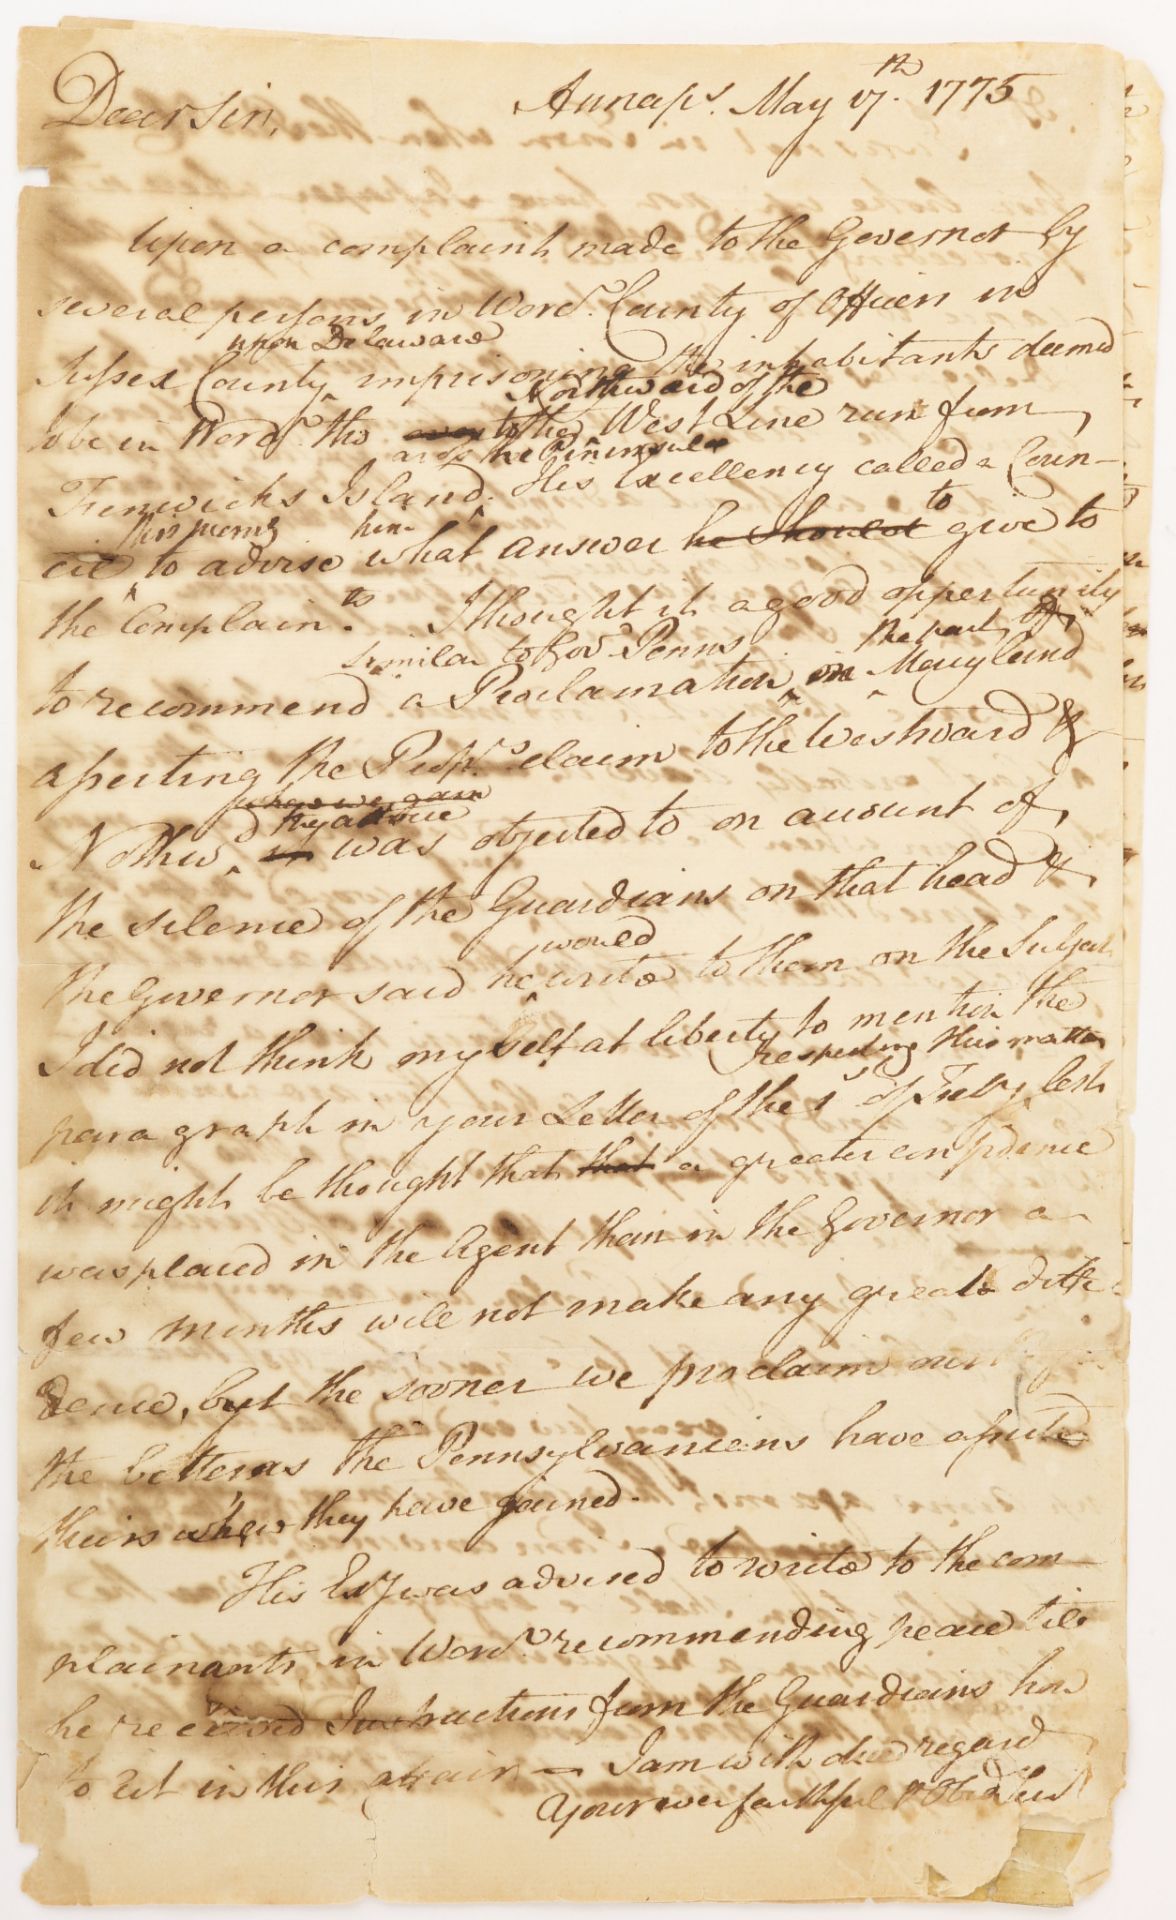 Dear Sir,
Annaps. May 17th. 1775
Upon a complaint made to the Governor by
several persons in Worcr. County of Officers in
upon Delaware
Sussex County imprisoning the inhabitants deemed
Northward of the
to be in Worcr. tho to the West Line run from
across the Peninsula
Fenwicks Island. His Excellency called a Coun-
this morng him to
cil to advise what answer he should give to
the Complaints. I thought it a good oppertunity
similar to Govr. Penns the part of
to recommend a Proclamation in Maryland
asserting the Propr.s claim to the Westward &
where we gain
my advice
Nothwd. it was objected to on account of
the silence of the Guardians on that head &
would
the Governor said he write to them on the Subject
I did not think myself at liberty to mention the
respecting this matter
paragraph in your Letter of the 1st of Feby lest
it might be thought that that a greater confidence
was placed in the Agent than in the Governor a
few months will not make any great diffe
rence, but the sooner we proclaim our
the better as the Pennsylvanians have asserted
theirs where they have gained.
His Exy was advised to write to the com-
plainants in Worr. recommending peace till
he received Instructions from the Guardians how
to act in this affair — I am with due regard
Your ever faithful & Obed Sert